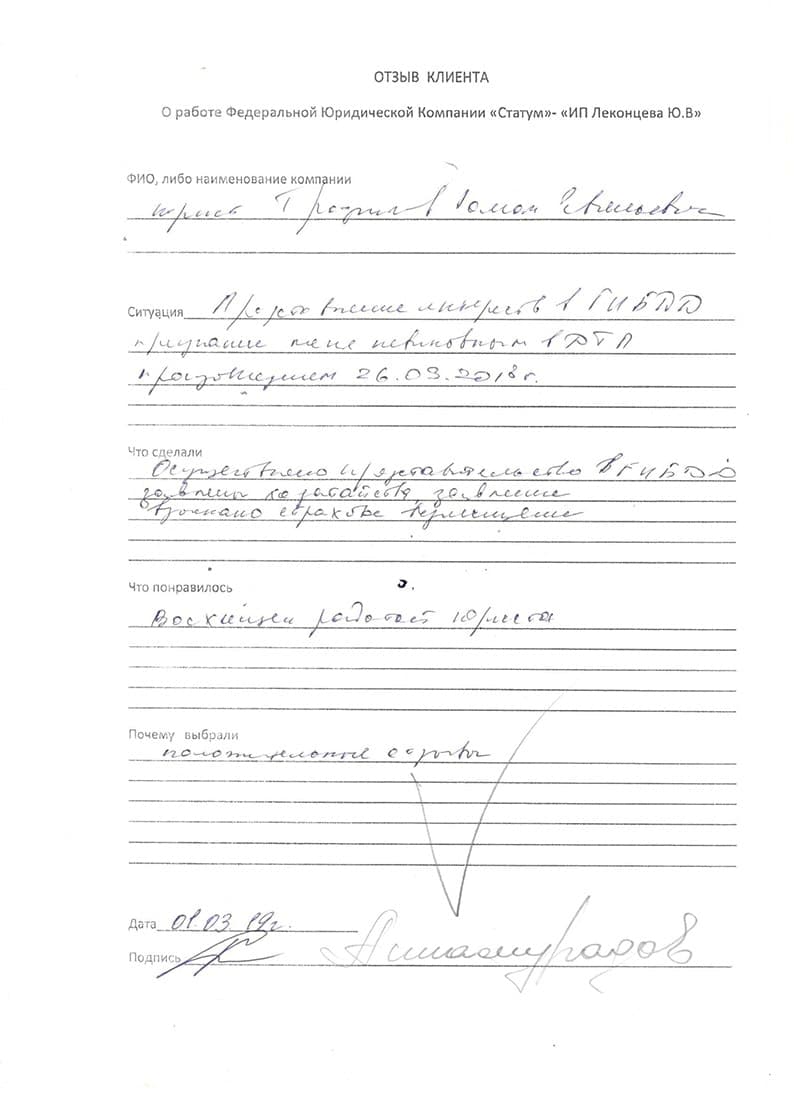 ОТЗЫВ КЛИЕНТА
О работе Федеральной Юридической Компании «Статум»- «ИП Леконцева Ю.В»
ФИО, либо наименование компании
юрист Роман
Ситуация Представление интересов в ГИБДД
признание меня невиновным в ДТП
произошедшем 26.09.2018г.
Что сделали
Осуществлено представительство в ГИБДД
заявлены ходатайства, заявление
взыскано страховое возмещение
Что понравилось
Восхищен работой юриста
Почему выбрали
положительные отзывы
Дата 01.03.19г.
Подпись